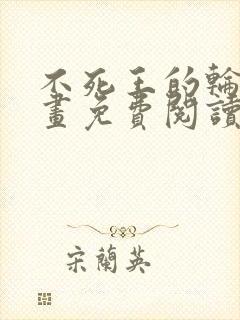 不死王的輪
畫免費閱讀
宋蘭英